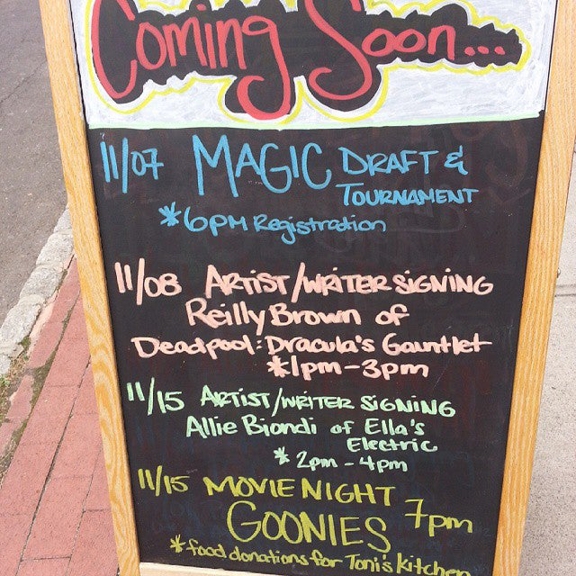 Coming Soon...
11/07 MAGIC DRAFT &
TOURNAMENT
*6PM Registration
11/08 ARTIST/WRITER SIGNING
Reilly Brown of
Deadpool: Dracula's Gauntlet
*1pm-3pm
11/15 ARTIST/WRITER SIGNING
Allie Biondi of Ella's
Electric
* 2pm - 4pm
11/15 MOVIE NIGHT 7pm
GOONIES
*food donations for Toni's kitchen